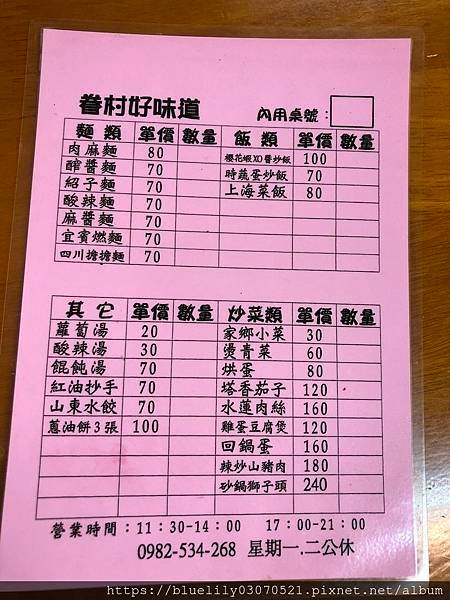 眷村好味道 內用桌號：
麵類 單價 數量 飯類 單價 數量
肉麻麵 80 櫻花蝦XO醬炒飯 100
醡醬麵 70 時蔬蛋炒飯 70
紹子麵 70 上海菜飯 80
酸辣麵 70
麻醬麵 70
宜賓燃麵 70
四川擔擔麵 70
其它 單價 數量 炒菜類 單價 數量
蘿蔔湯 20 家鄉小菜 30
酸辣湯 30 燙青菜 60
餛飩湯 70 烘蛋 80
紅油抄手 70 塔香茄子 120
山東水餃 70 水蓮肉絲 160
蔥油餅3張 100 雞蛋豆腐煲 120
回鍋蛋 160
辣炒山豬肉 180
砂鍋獅子頭 240
營業時間：11：30-14：00 17：00-21：00
0982-534-268 星期一.二公休
https://bluelily03070521.pixnet.net/album